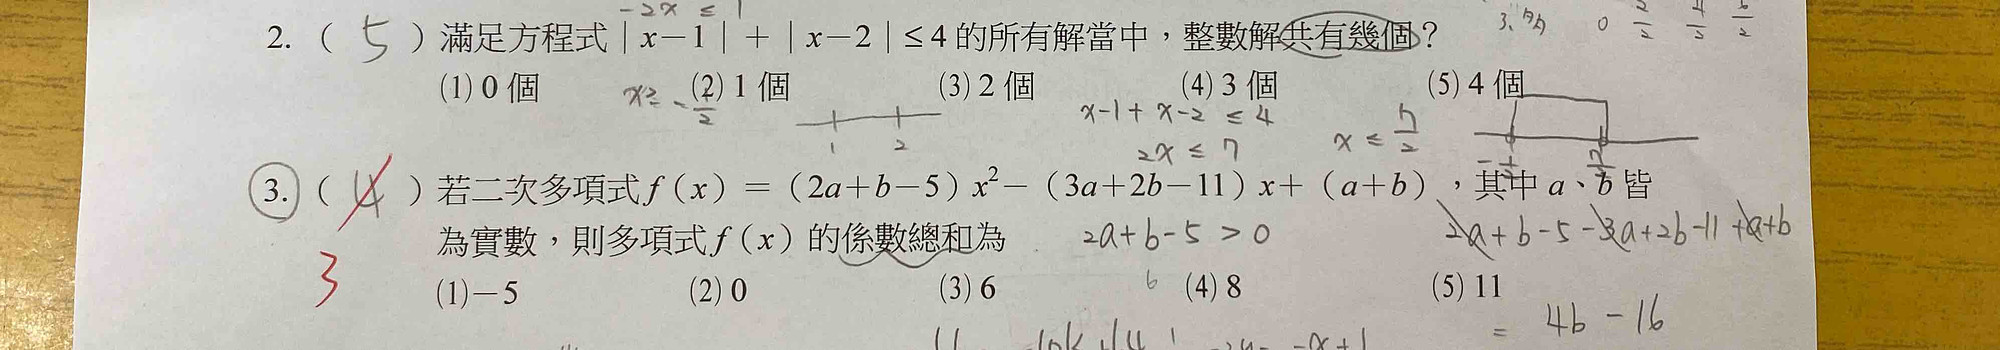 -2x ≤ 1
2. ( 5 ) 滿足方程式 | x－1 | + | x－2 | ≤ 4 的所有解當中，整數解共有幾個？
(1) 0 個 (2) 1 個 (3) 2 個 (4) 3 個 (5) 4 個
x-1+x-2 ≤ 4
1 2
2x ≤ 7
x ≤ 7/2
3. ( 4 ) 若二次多項式 f (x) ＝ (2a＋b－5) x²－ (3a＋2b－11) x＋ (a＋b)，其中 a、b 皆
為實數，則多項式 f (x) 的係數總和為
2a+b-5 > 0
2a+b-5-3a+2b-11+a+b
3
(1)－5 (2) 0 (3) 6 (4) 8 (5) 11
6
= 4b - 16